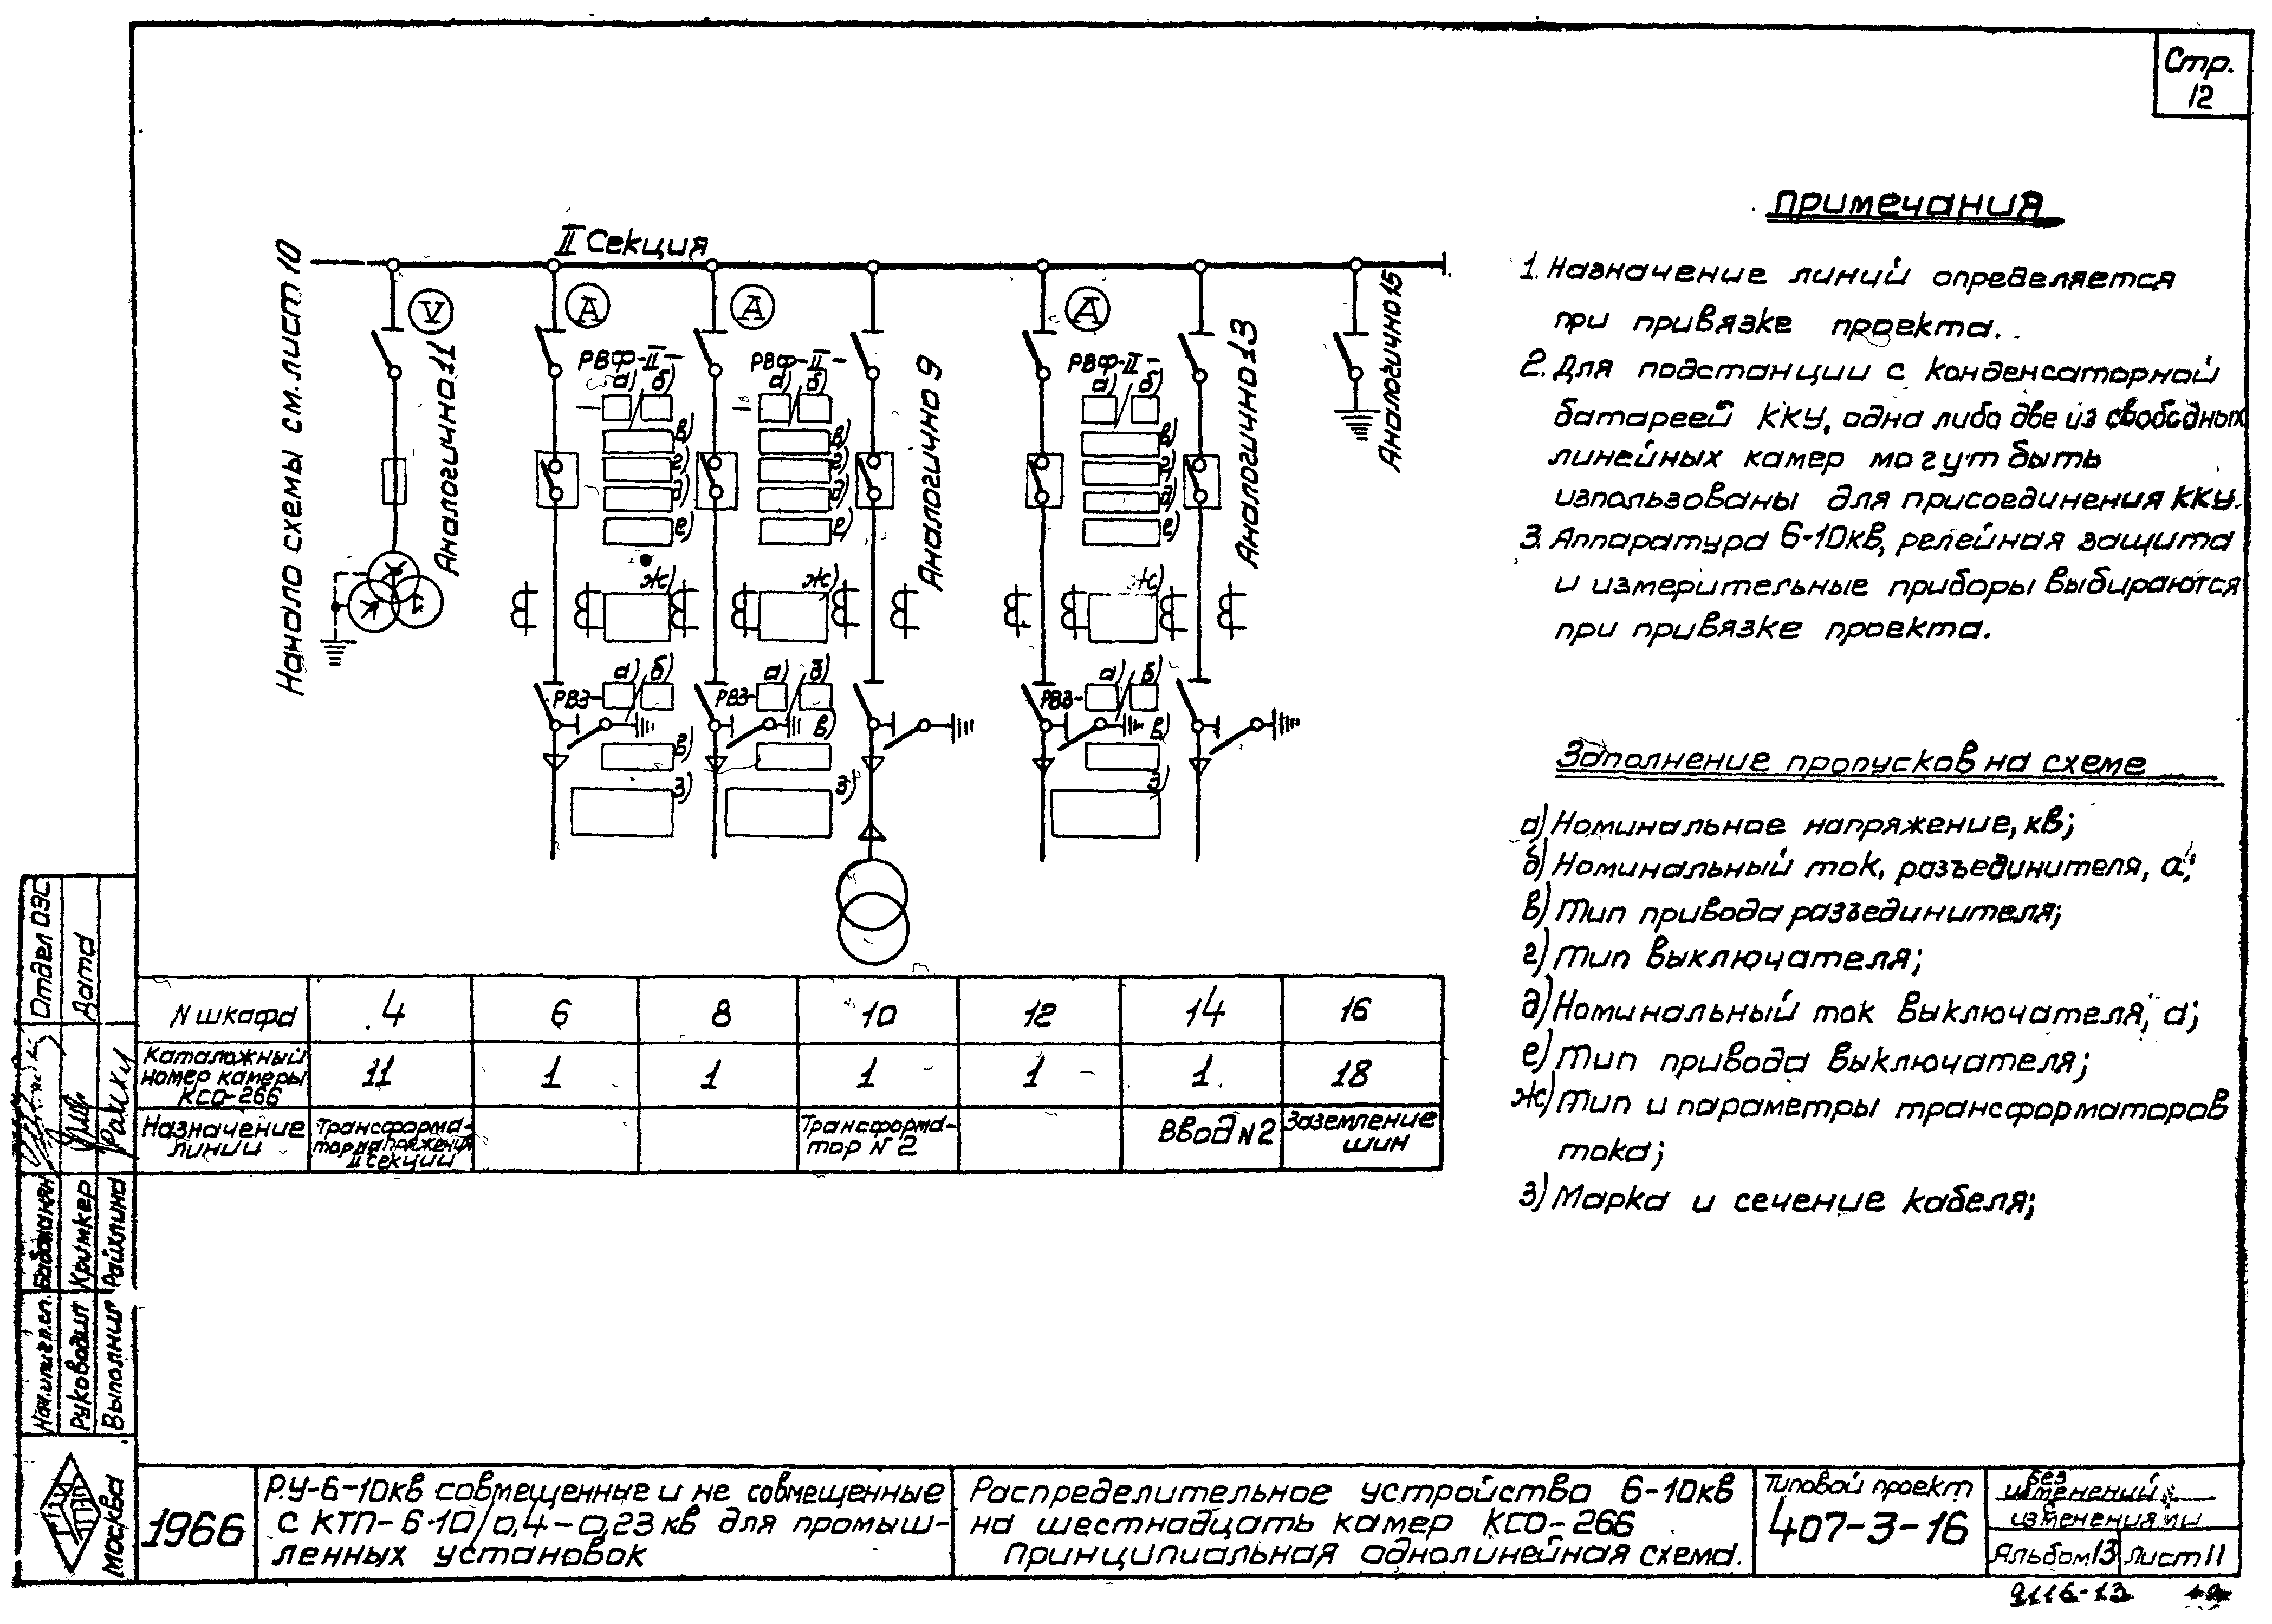 Стр.
12
Начало схемы см. лист 10
II Секция
V
Аналогично 11
A
РВФ-II-
а) б)
в)
г)
д)
е)
ж)
РВЗ-
а) б)
в)
з)
A
РВФ-II-
а) б)
в)
г)
д)
е)
ж)
РВЗ-
а) б)
в)
з)
Аналогично 9
A
РВФ-II-
а) б)
в)
г)
д)
е)
ж)
РВЗ-
а) б)
в)
з)
Аналогично 13
Аналогично 15
Примечания
1. Назначение линий определяется
при привязке проекта.
2. Для подстанции с конденсаторной
батареей ККУ, одна либо две из свободных
линейных камер могут быть
изпользованы для присоединения ККУ.
3. Аппаратура 6-10кв, релейная защита
и измерительные приборы выбираются
при привязке проекта.
Заполнение пропусков на схеме
а) Номинальное напряжение, кв;
б) Номинальный ток, разъединителя, а;
в) Тип привода разъединителя;
г) Тип выключателя;
д) Номинальный ток выключателя, а;
е) Тип привода выключателя;
ж) Тип и параметры трансформаторов
тока;
з) Марка и сечение кабеля;
N шкафа 4 6 8 10 12 14 16
Каталожный
номер камеры
КСО-266
11 1 1 1 1 1 18
Назначение
линии
Трансформа-
тор напряжения
II секции
Трансформа-
тор N 2
Ввод N 2
Заземление
шин
Отдел ОЭС
Дата
Кримкер
Райхлина
Руководил
Выполнил
Москва
1966
Р.У-6-10кв совмещенные и не совмещенные
с КТП-6-10/0,4-0,23 кв для промыш-
ленных установок
Распределительное устройство 6-10кв
на шестнадцать камер КСО-266
Принципиальная однолинейная схема.
Типовой проект
407-3-16
без
изменений
с
изменениями
Альбом 13
Лист 11
9116-13